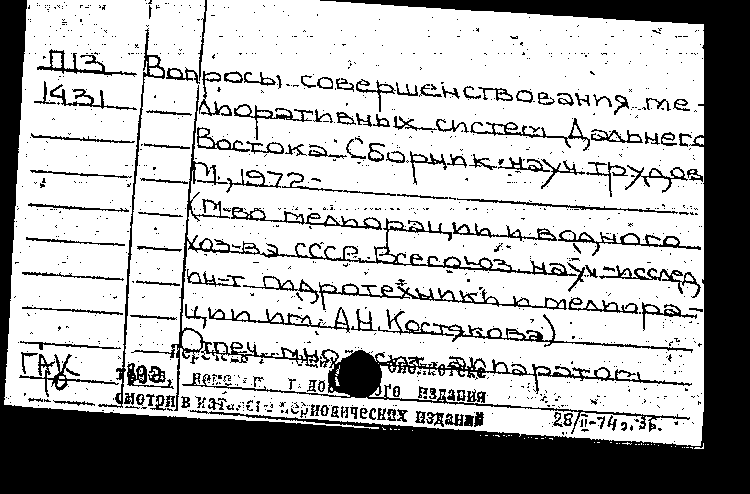 П13 Вопросы совершенствования ме-
1431 лиоративных систем Дальнего
Востока. Сборник науч. трудов
М., 1972-
(М-во мелиорации и водного
хоз-ва СССР. Всесоюз. науч.-исслед.
ин-т гидротехники и мелиора-
ции им. А.Н. Костякова)
Отпеч. множит. аппаратом
ГАК
издания
смотри в каталоге периодических изданий
28/II-74г.